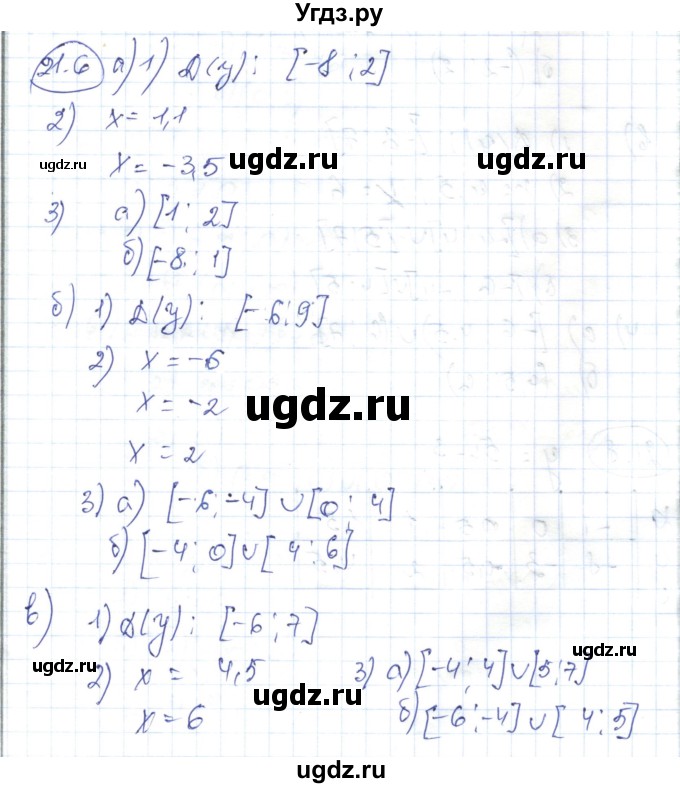 Угдз.ру
21.6 а) 1) D(y): [-8; 2]
2) x = 1,1
x = -3,5
3) а) [1; 2]
б) [-8; 1]
б) 1) D(y): [-6; 9]
2) x = -6
x = -2
x = 2
3) а) [-6; -4] ∪ [0; 4]
б) [-4; 0] ∪ [4; 6]
в) 1) D(y): [-6; 7]
2) x = 4,5
x = 6
3) а) [-4; 4] ∪ [5; 7]
б) [-6; -4] ∪ [4; 5]
ugdz.ru
ugdz.ru
ugdz.ru
ugdz.ru
ugdz.ru
ugdz.ru
ugdz.ru
ugdz.ru
ugdz.ru
ugdz.ru
ugdz.ru